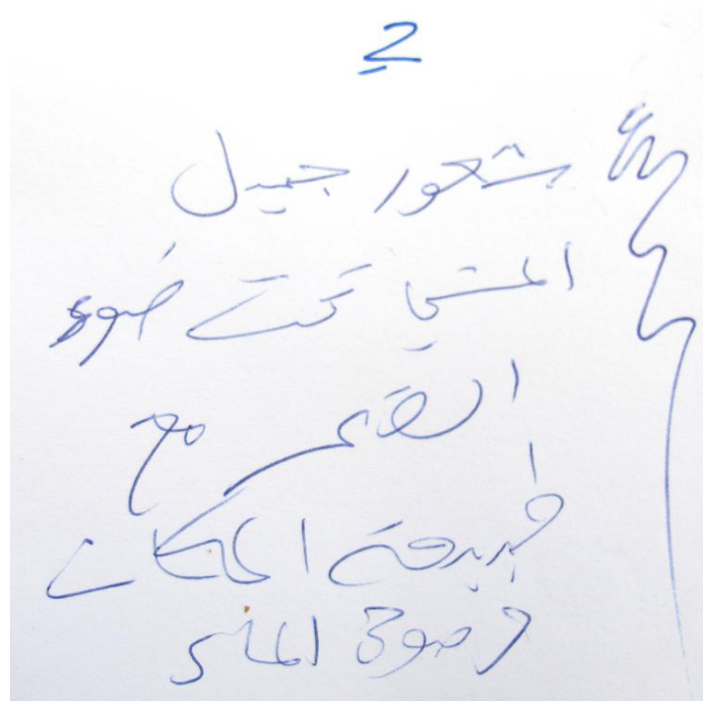 2
شعور جميل
المشي تحت ضوء
القمر مع
طبيعة المكان
وصوت الماء